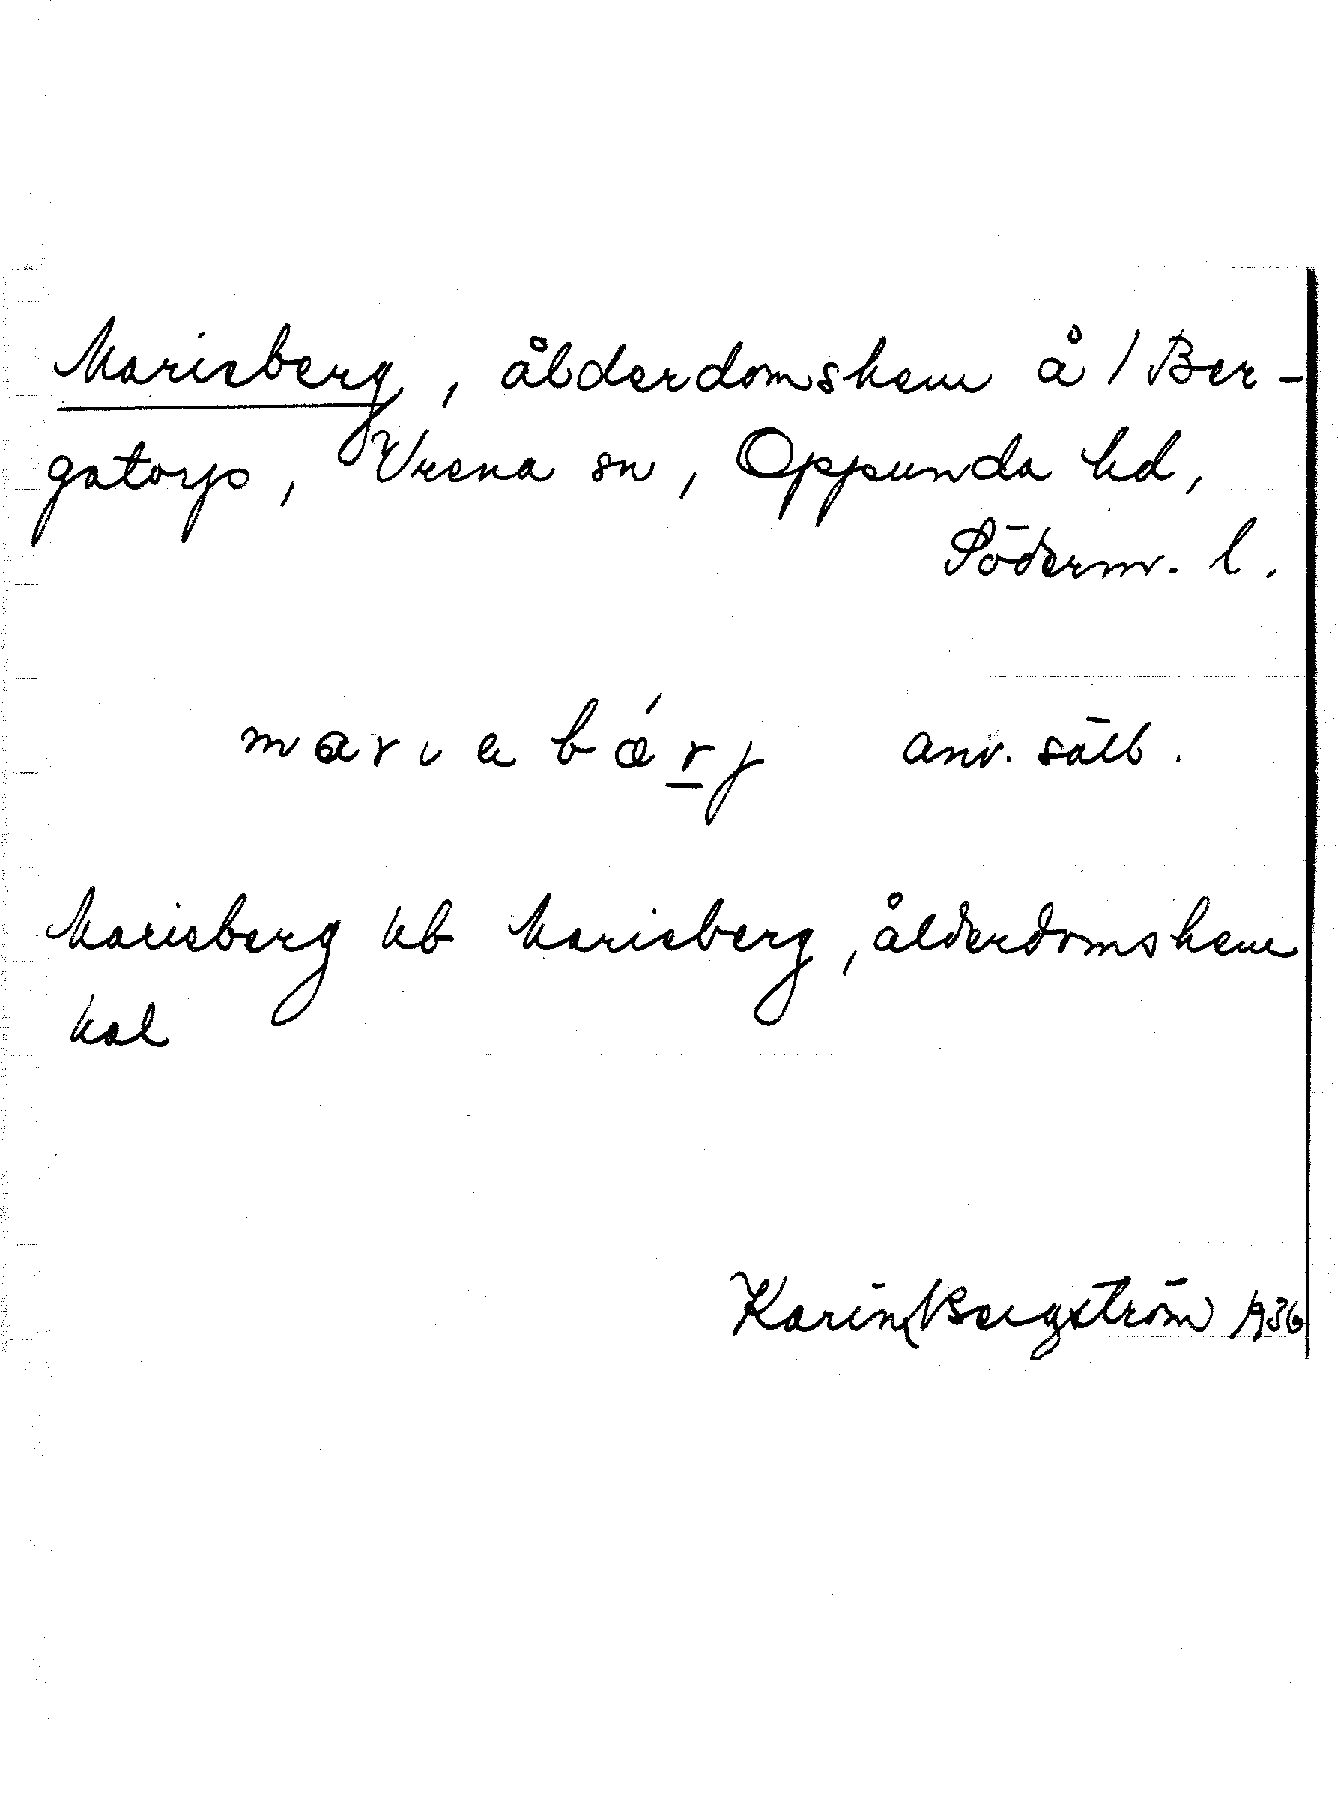 Marieberg, ålderdomshem å 1 Ber-
gatorp, Vrena sn, Oppunda hd,
Söderm. l.
m a r ı e b ǽ r̲ j anv.
Marieberg kb Marieberg, ålderdomshem
kal
Karin Bergström 1936